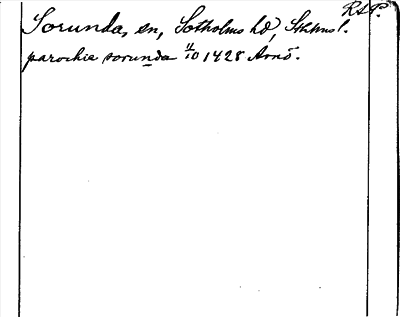 RAP.
Sorunda, sn, Sotholms hd, Sthms l.
parochie sorunda 11/10 1428 Arnö.